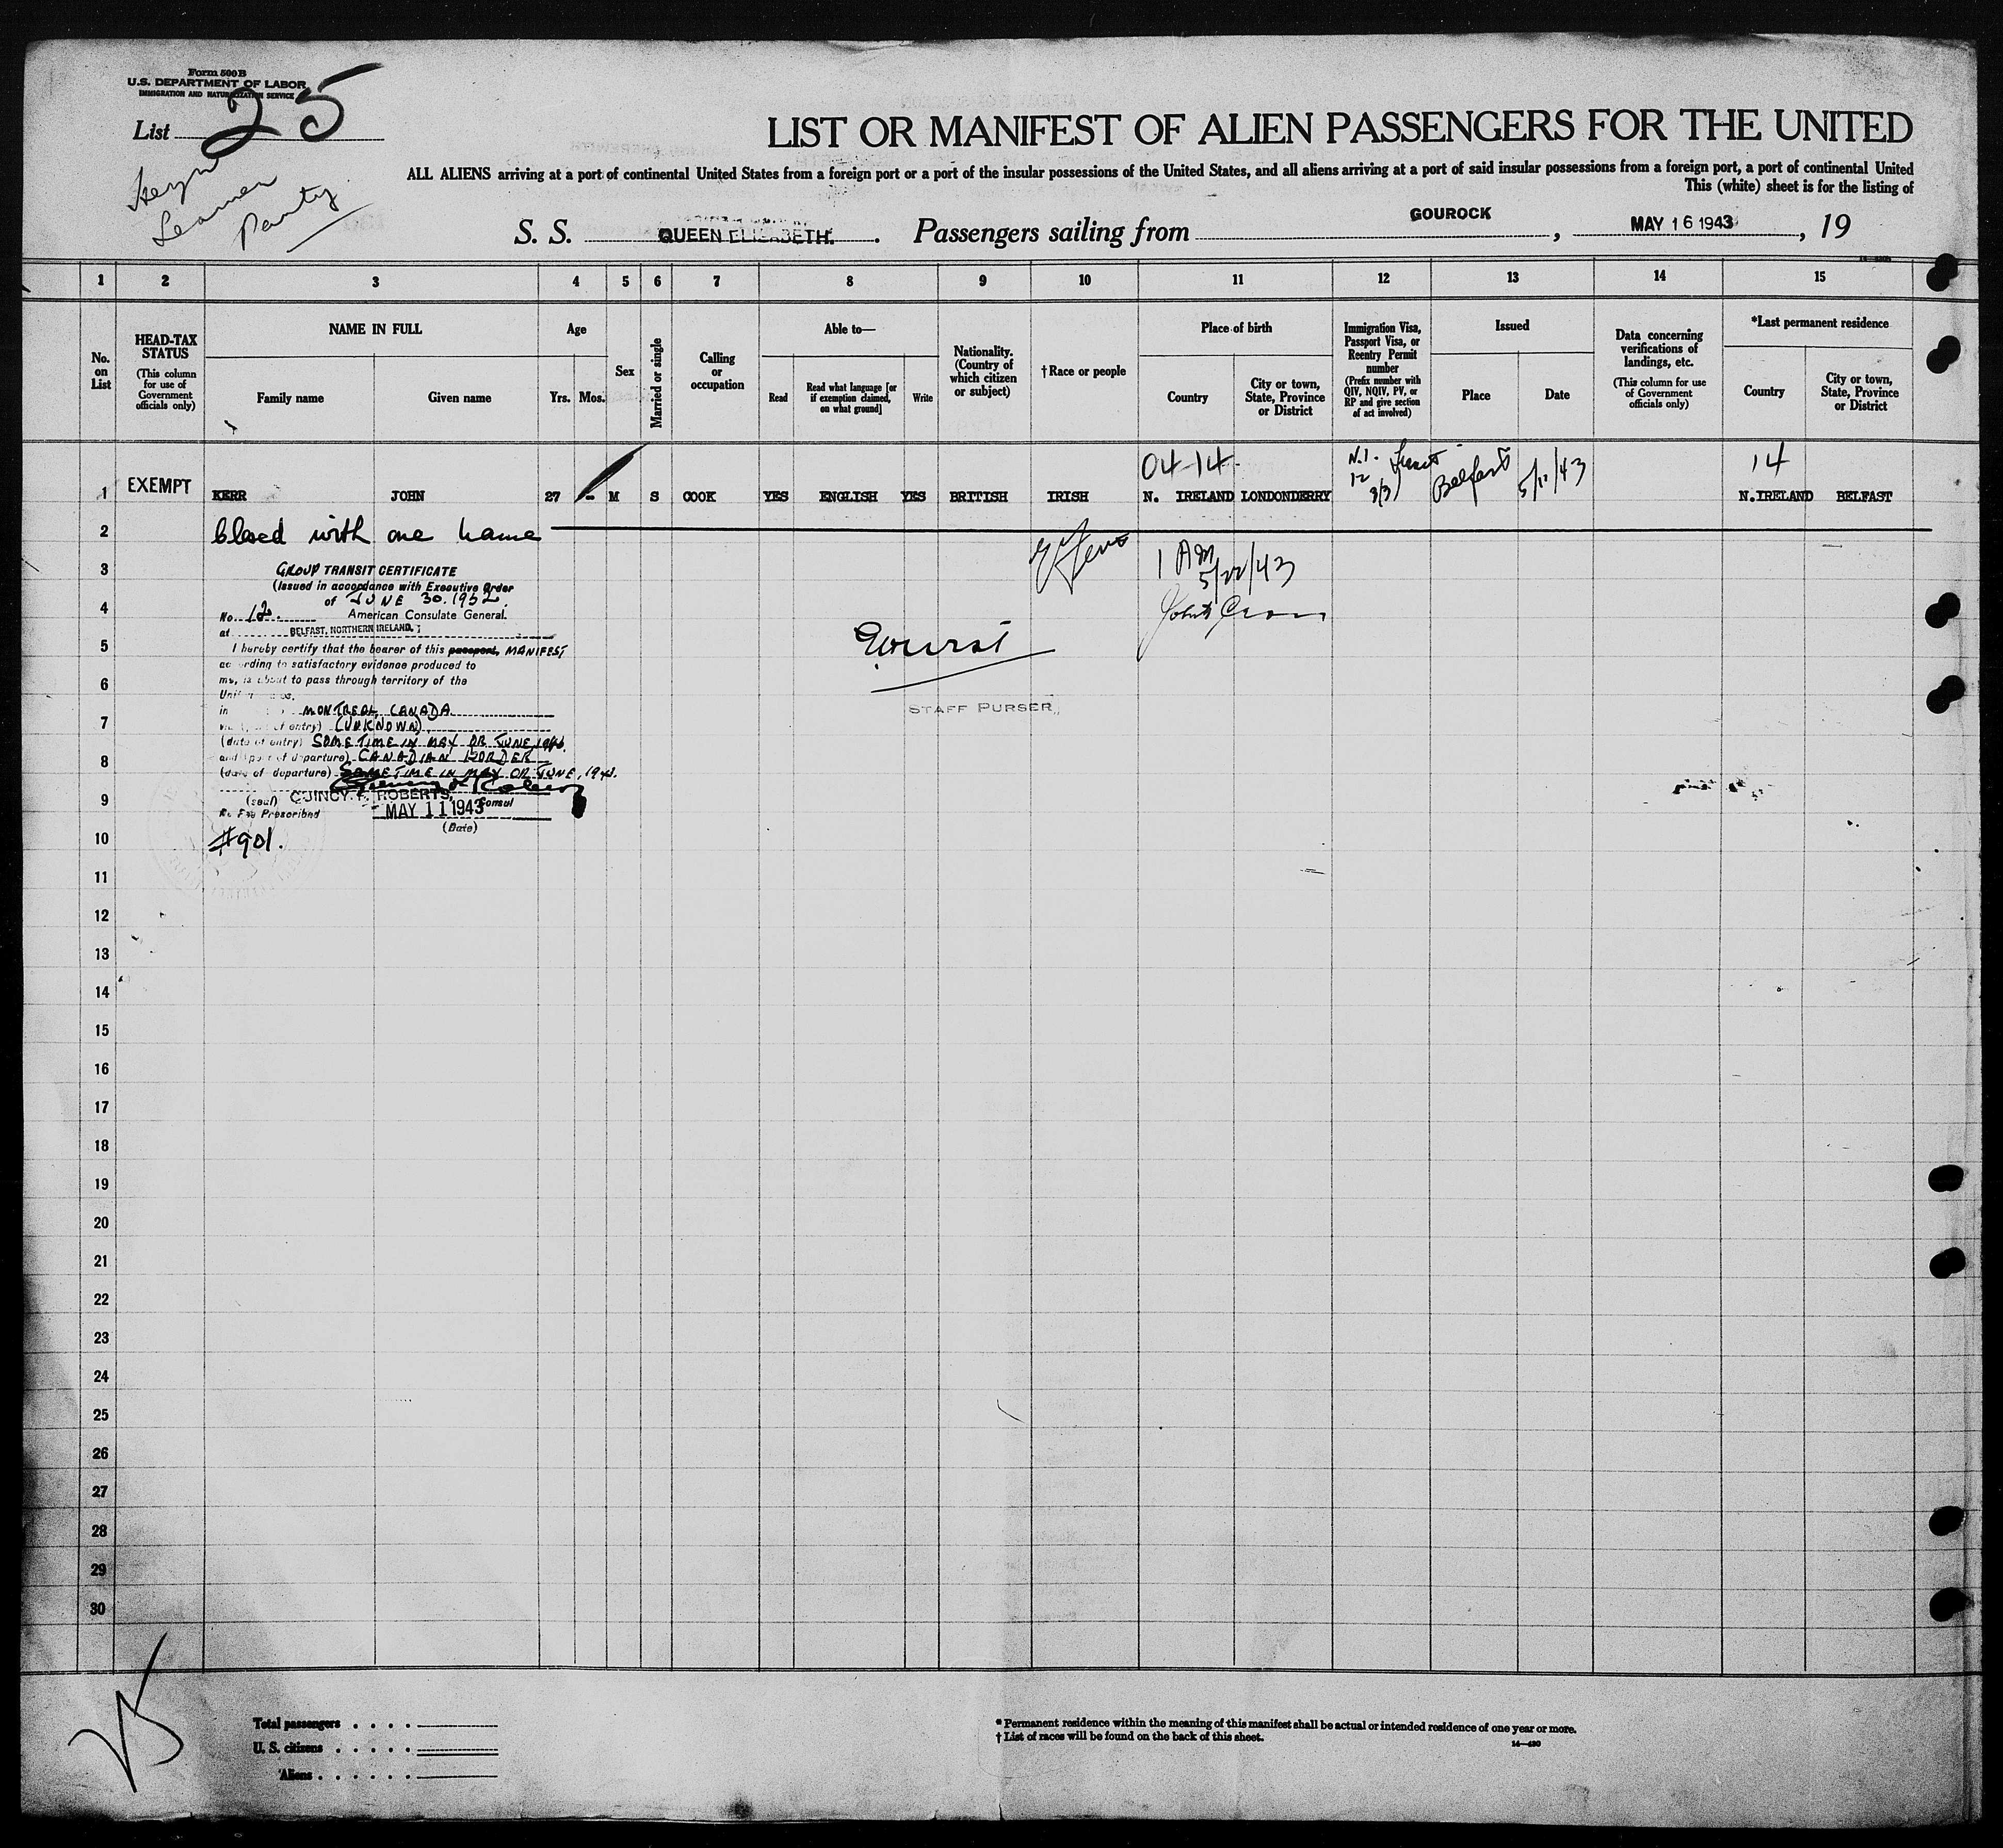 Form 500B
U.S. DEPARTMENT OF LABOR
IMMIGRATION AND NATURALIZATION SERVICE
List 25
Seamen
Party
LIST OR MANIFEST OF ALIEN PASSENGERS FOR THE UNITED
ALL ALIENS arriving at a port of continental United States from a foreign port or a port of the insular possessions of the United States, and all aliens arriving at a port of said insular possessions from a foreign port, a port of continental United
This (white) sheet is for the listing of
S. S. QUEEN ELIZABETH. Passengers sailing from GOUROCK, MAY 16 1943, 19
1 2 3 4 5 6 7 8 9 10 11 12 13 14 15
No. on List
HEAD-TAX STATUS
(This column for use of Government officials only)
NAME IN FULL
Family name
Given name
Age
Yrs. Mos.
Sex
Married or single
Calling or occupation
Able to—
Read
Read what language [or if exemption claimed, on what ground]
Write
Nationality. (Country of which citizen or subject)
†Race or people
Place of birth
Country
City or town, State, Province or District
Immigration Visa, Passport Visa, or Reentry Permit number
(Prefix number with QIV, NQIV, PV, or RP and give section of act involved)
Issued
Place
Date
Data concerning verifications of landings, etc.
(This column for use of Government officials only)
*Last permanent residence
Country
City or town, State, Province or District
04-14
N.I.
12
3/3)
Belfast
5/11/43
14
1 EXEMPT KERR JOHN 27 - M S COOK YES ENGLISH YES BRITISH IRISH N. IRELAND LONDONDERRY N.IRELAND BELFAST
2 Closed with one name
3 GROUP TRANSIT CERTIFICATE
(Issued in accordance with Executive Order
of JUNE 30.1932.
4 No. 12. American Consulate General.
at BELFAST, NORTHERN IRELAND.
1 AM
5/22/43
5 I hereby certify that the bearer of this passport, MANIFEST
according to satisfactory evidence produced to
6 me, is about to pass through territory of the
STAFF PURSER
in MONTREAL, CANADA
7 of entry) (UNKNOWN)
(date of entry) SOMETIME IN MAY OR JUNE, 1943.
8 and port of departure) CANADIAN BORDER
(date of departure) SOMETIME IN MAY OR JUNE, 1943.
9 (seal) QUINCY F. ROBERTS, Consul
No Fee Prescribed MAY 11 1943
(Date)
10 #901.
11
12
13
14
15
16
17
18
19
20
21
22
23
24
25
26
27
28
29
30
25
Total passengers . . . .
U. S. citizens . . . . .
Aliens . . . . . .
* Permanent residence within the meaning of this manifest shall be actual or intended residence of one year or more.
† List of races will be found on the back of this sheet.
14—430